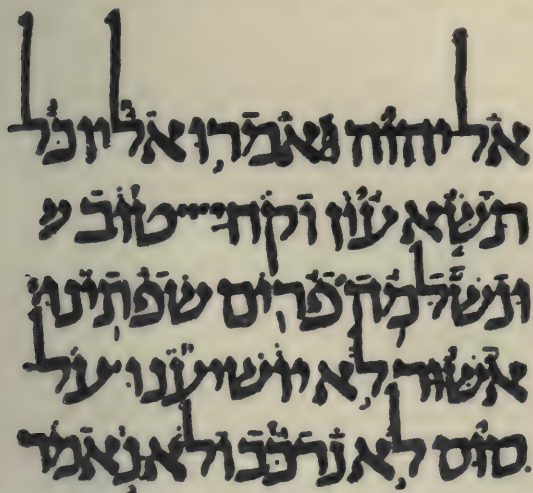 אל יהוה אמרו אליו כל
תשא עון וקח טוב ו
ונשלמה פרים שפתינו
אשור לא יושיענו על
סוס לא נרכב ולא נאמר